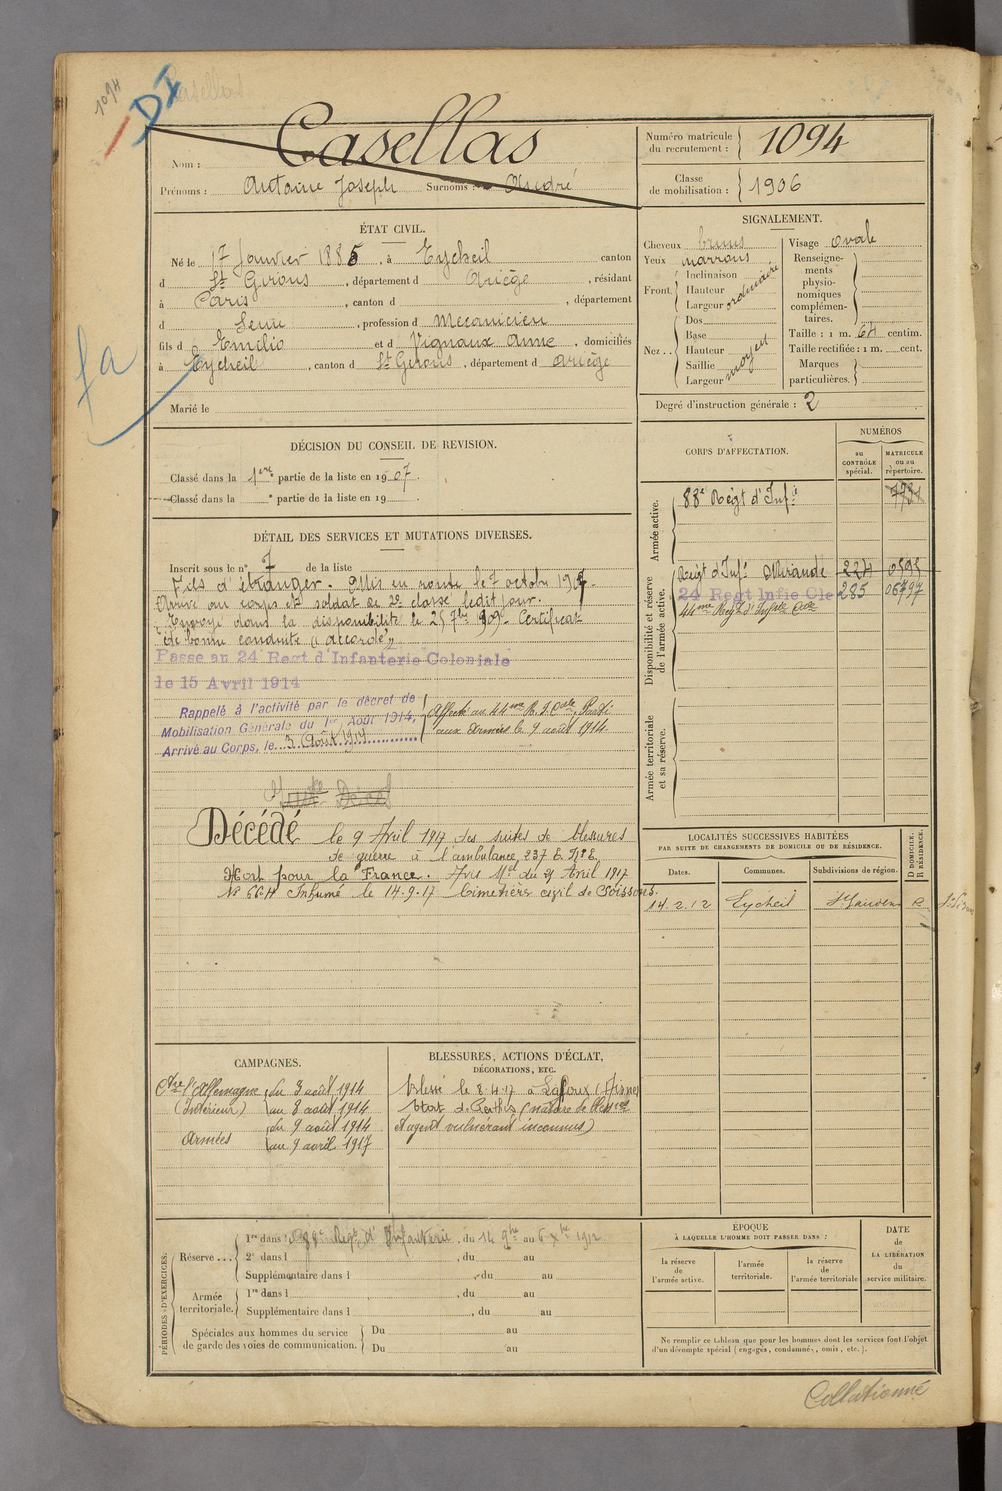 1094
DI
Casellas
Nom : Casellas
Prénoms : Antoine Joseph Surnoms : André
Numéro matricule du recrutement : 1094
Classe de mobilisation : 1906
ÉTAT CIVIL.
Né le 17 Janvier 1886, à Eycheil canton
d St Girons, département d Ariège, résidant
à Paris, canton d , département
d Seine, profession d Mecanicien
fils d Emilio et d Vignaux Anne, domiciliés
à Eycheil, canton d St Girons, département d Ariège
Marié le
fa
SIGNALEMENT.
Cheveux bruns
Yeux marrons
Front. Inclinaison
Hauteur
Largeur
ordinaire
Nez.. Dos
Base
Hauteur
Saillie
Largeur
moyen
Visage ovale
Renseignements physionomiques complémentaires.
Taille : 1 m. 64 centim.
Taille rectifiée : 1 m. cent.
Marques particulières.
Degré d'instruction générale : 2
DÉCISION DU CONSEIL DE REVISION.
Classé dans la 1ere partie de la liste en 1907.
Classé dans la e partie de la liste en 19
CORPS D'AFFECTATION.
NUMÉROS
au CONTRÔLE spécial.
MATRICULE ou au répertoire.
Armée active.
88e Régt d'Infie
Disponibilité et réserve de l'armée active.
Régt d'Infie Mirande 224
24 Regt Infie Cle 285 06797
44me Régt d'Infie Cole
Armée territoriale et sa réserve.
DÉTAIL DES SERVICES ET MUTATIONS DIVERSES.
Inscrit sous le n° 7 de la liste
Fils d'étranger. Mis en route le 7 octobre 1907.
Arrivé au corps et soldat de 2e classe ledit jour.
Envoyé dans la disponibilité le 25 7bre 1909. Certificat
de bonne conduite "accordé"
Passe au 24 Regt d'Infanterie Coloniale
le 15 Avril 1914
Rappelé à l'activité par le décret de
Mobilisation Générale du 1er Août 1914,
Arrivé au Corps, le 3 Août 1914
Affecté au 44me R. I. Cole, Parti
aux Armées le 9 août 1914.
Décédé le 9 Avril 1917 des suites de blessures
de guerre à l'ambulance 237
Mort pour la France. Avis Mel du 21 Avril 1917
N° 6604 Inhumé le 14-9-17 Cimetière civil de Soissons.
LOCALITÉS SUCCESSIVES HABITÉES
PAR SUITE DE CHANGEMENTS DE DOMICILE OU DE RÉSIDENCE.
Dates. Communes. Subdivisions de région. D DOMICILE. R RÉSIDENCE.
14.2.12 Eycheil St Gaudens R
CAMPAGNES.
Ctre l'Allemagne du 3 août 1914
(Intérieur) au 8 août 1914
Armées du 9 août 1914
au 9 avril 1917
BLESSURES, ACTIONS D'ÉCLAT,
DÉCORATIONS, ETC.
Blessé le 8-4-17 à Laffaux (Aisne)
(nature de blessure
et agent vulnérant inconnus)
PÉRIODES D'EXERCICES.
Réserve ...
1re dans l 88e Régt d'Infanterie, du 14 9bre au 6 Xbre 1912.
2e dans l , du au
Supplémentaire dans l , du au
Armée territoriale.
1re dans l , du au
Supplémentaire dans l , du au
Spéciales aux hommes du service de garde des voies de communication.
Du au
Du au
ÉPOQUE
À LAQUELLE L'HOMME DOIT PASSER DANS :
la réserve de l'armée active.
l'armée territoriale.
la réserve de l'armée territoriale
DATE DE LA LIBÉRATION du service militaire.
Ne remplir ce tableau que pour les hommes dont les services font l'objet
d'un décompte spécial (engagés, condamnés, omis, etc.).
Collationné